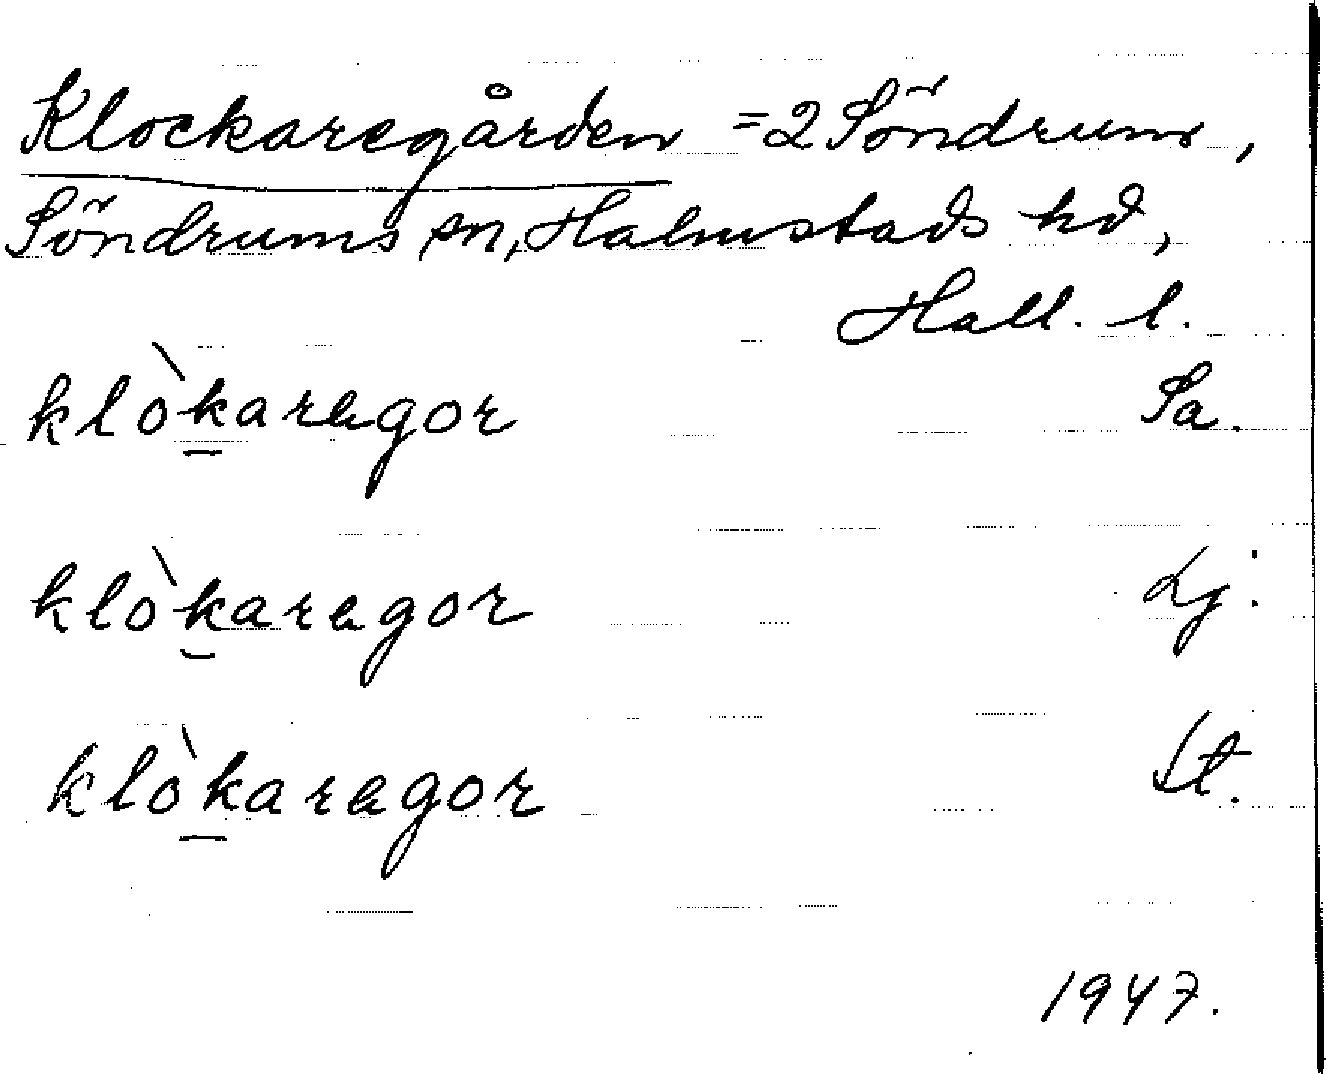 Klockaregården = 2 Söndrum,
Söndrums sn, Halmstads hd,
Hall. l.
klòkaragor Sa.
klòkaragor Lj.
klòkaragor St.
1947.